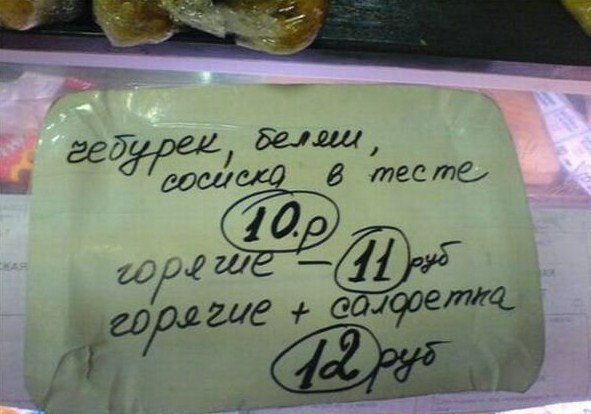 чебурек, беляш,
сосиска в тесте
10.р
горячие – 11 руб
горячие + салфетка
12 руб